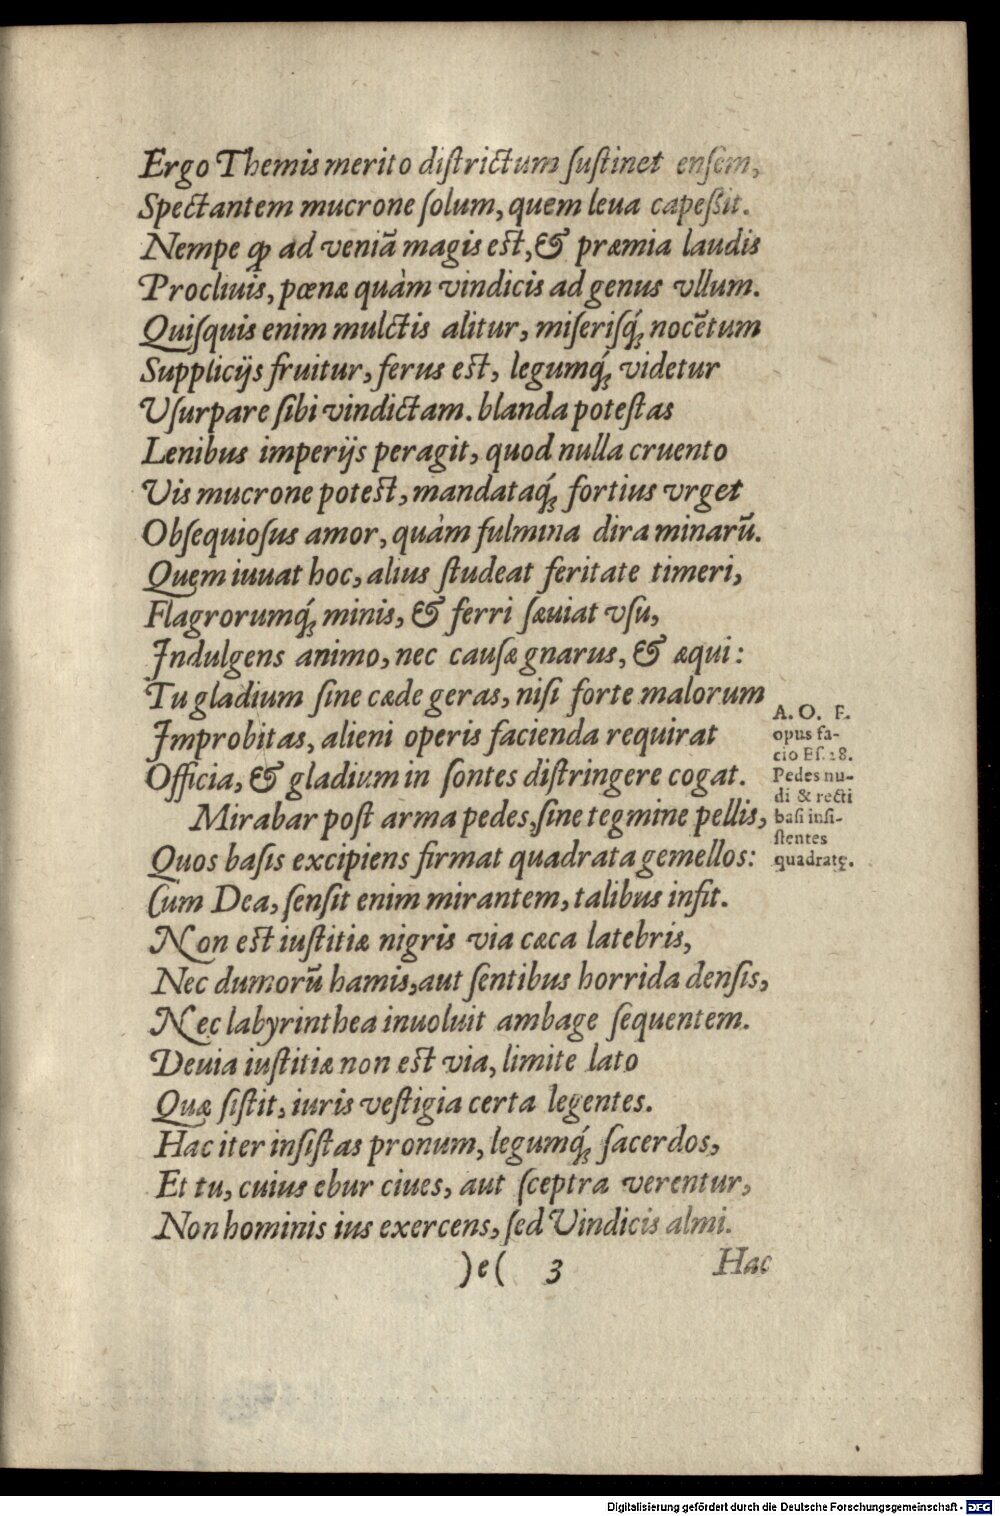 Ergo Themis merito diſtrictum ſuſtinet enſem,
Spectantem mucrone ſolum, quem leua capeſsit.
Nempe ꝙ ad veniā magis eſt, & præmia laudis
Procliuis, pœnæ quàm vindicis ad genus vllum.
Quiſquis enim mulctis alitur, miſeriſq́; nocētum
Supplicijs fruitur, ferus eſt, legumq́; videtur
Vſurpare ſibi vindictam. blanda poteſtas
Lenibus imperijs peragit, quod nulla cruento
Vis mucrone poteſt, mandataq́; fortius vrget
Obſequioſus amor, quàm fulmina dira minarū.
Quem iuuat hoc, alius ſtudeat feritate timeri,
Flagrorumq́; minis, & ferri ſæuiat vſu,
Indulgens animo, nec cauſæ gnarus, & æqui:
Tu gladium ſine cæde geras, niſi forte malorum
Improbitas, alieni operis facienda requirat
Officia, & gladium in ſontes diſtringere cogat.
Mirabar poſt arma pedes, ſine tegmine pellis,
Quos baſis excipiens firmat quadrata gemellos:
Cum Dea, ſenſit enim mirantem, talibus infit.
Non eſt iuſtitiæ nigris via cæca latebris,
Nec dumorū hamis, aut ſentibus horrida denſis,
Nec labyrinthea inuoluit ambage ſequentem.
Deuia iuſtitiæ non eſt via, limite lato
Quæ ſiſtit, iuris veſtigia certa legentes.
Hac iter inſiſtas pronum, legumq́; ſacerdos,
Et tu, cuius ebur ciues, aut ſceptra verentur,
Non hominis ius exercens, ſed Vindicis almi.
)e( 3 Hac
A. O. F.
opus fa-
cio Eſ. 28.
Pedes nu-
di & recti
baſi inſi-
ſtentes
quadratę.
Digitalisierung gefördert durch die Deutsche Forschungsgemeinschaft - DFG